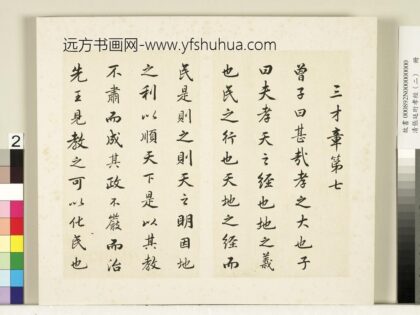 远方书画网-www.yfshuhua.com
三才章第七
曾子曰甚哉孝之大也子
曰夫孝天之經也地之義
也民之行也天地之經而
民是則之則天之明因地
之利以順天下是以其教
不肅而成其政不嚴而治
先王見教之可以化民也
2